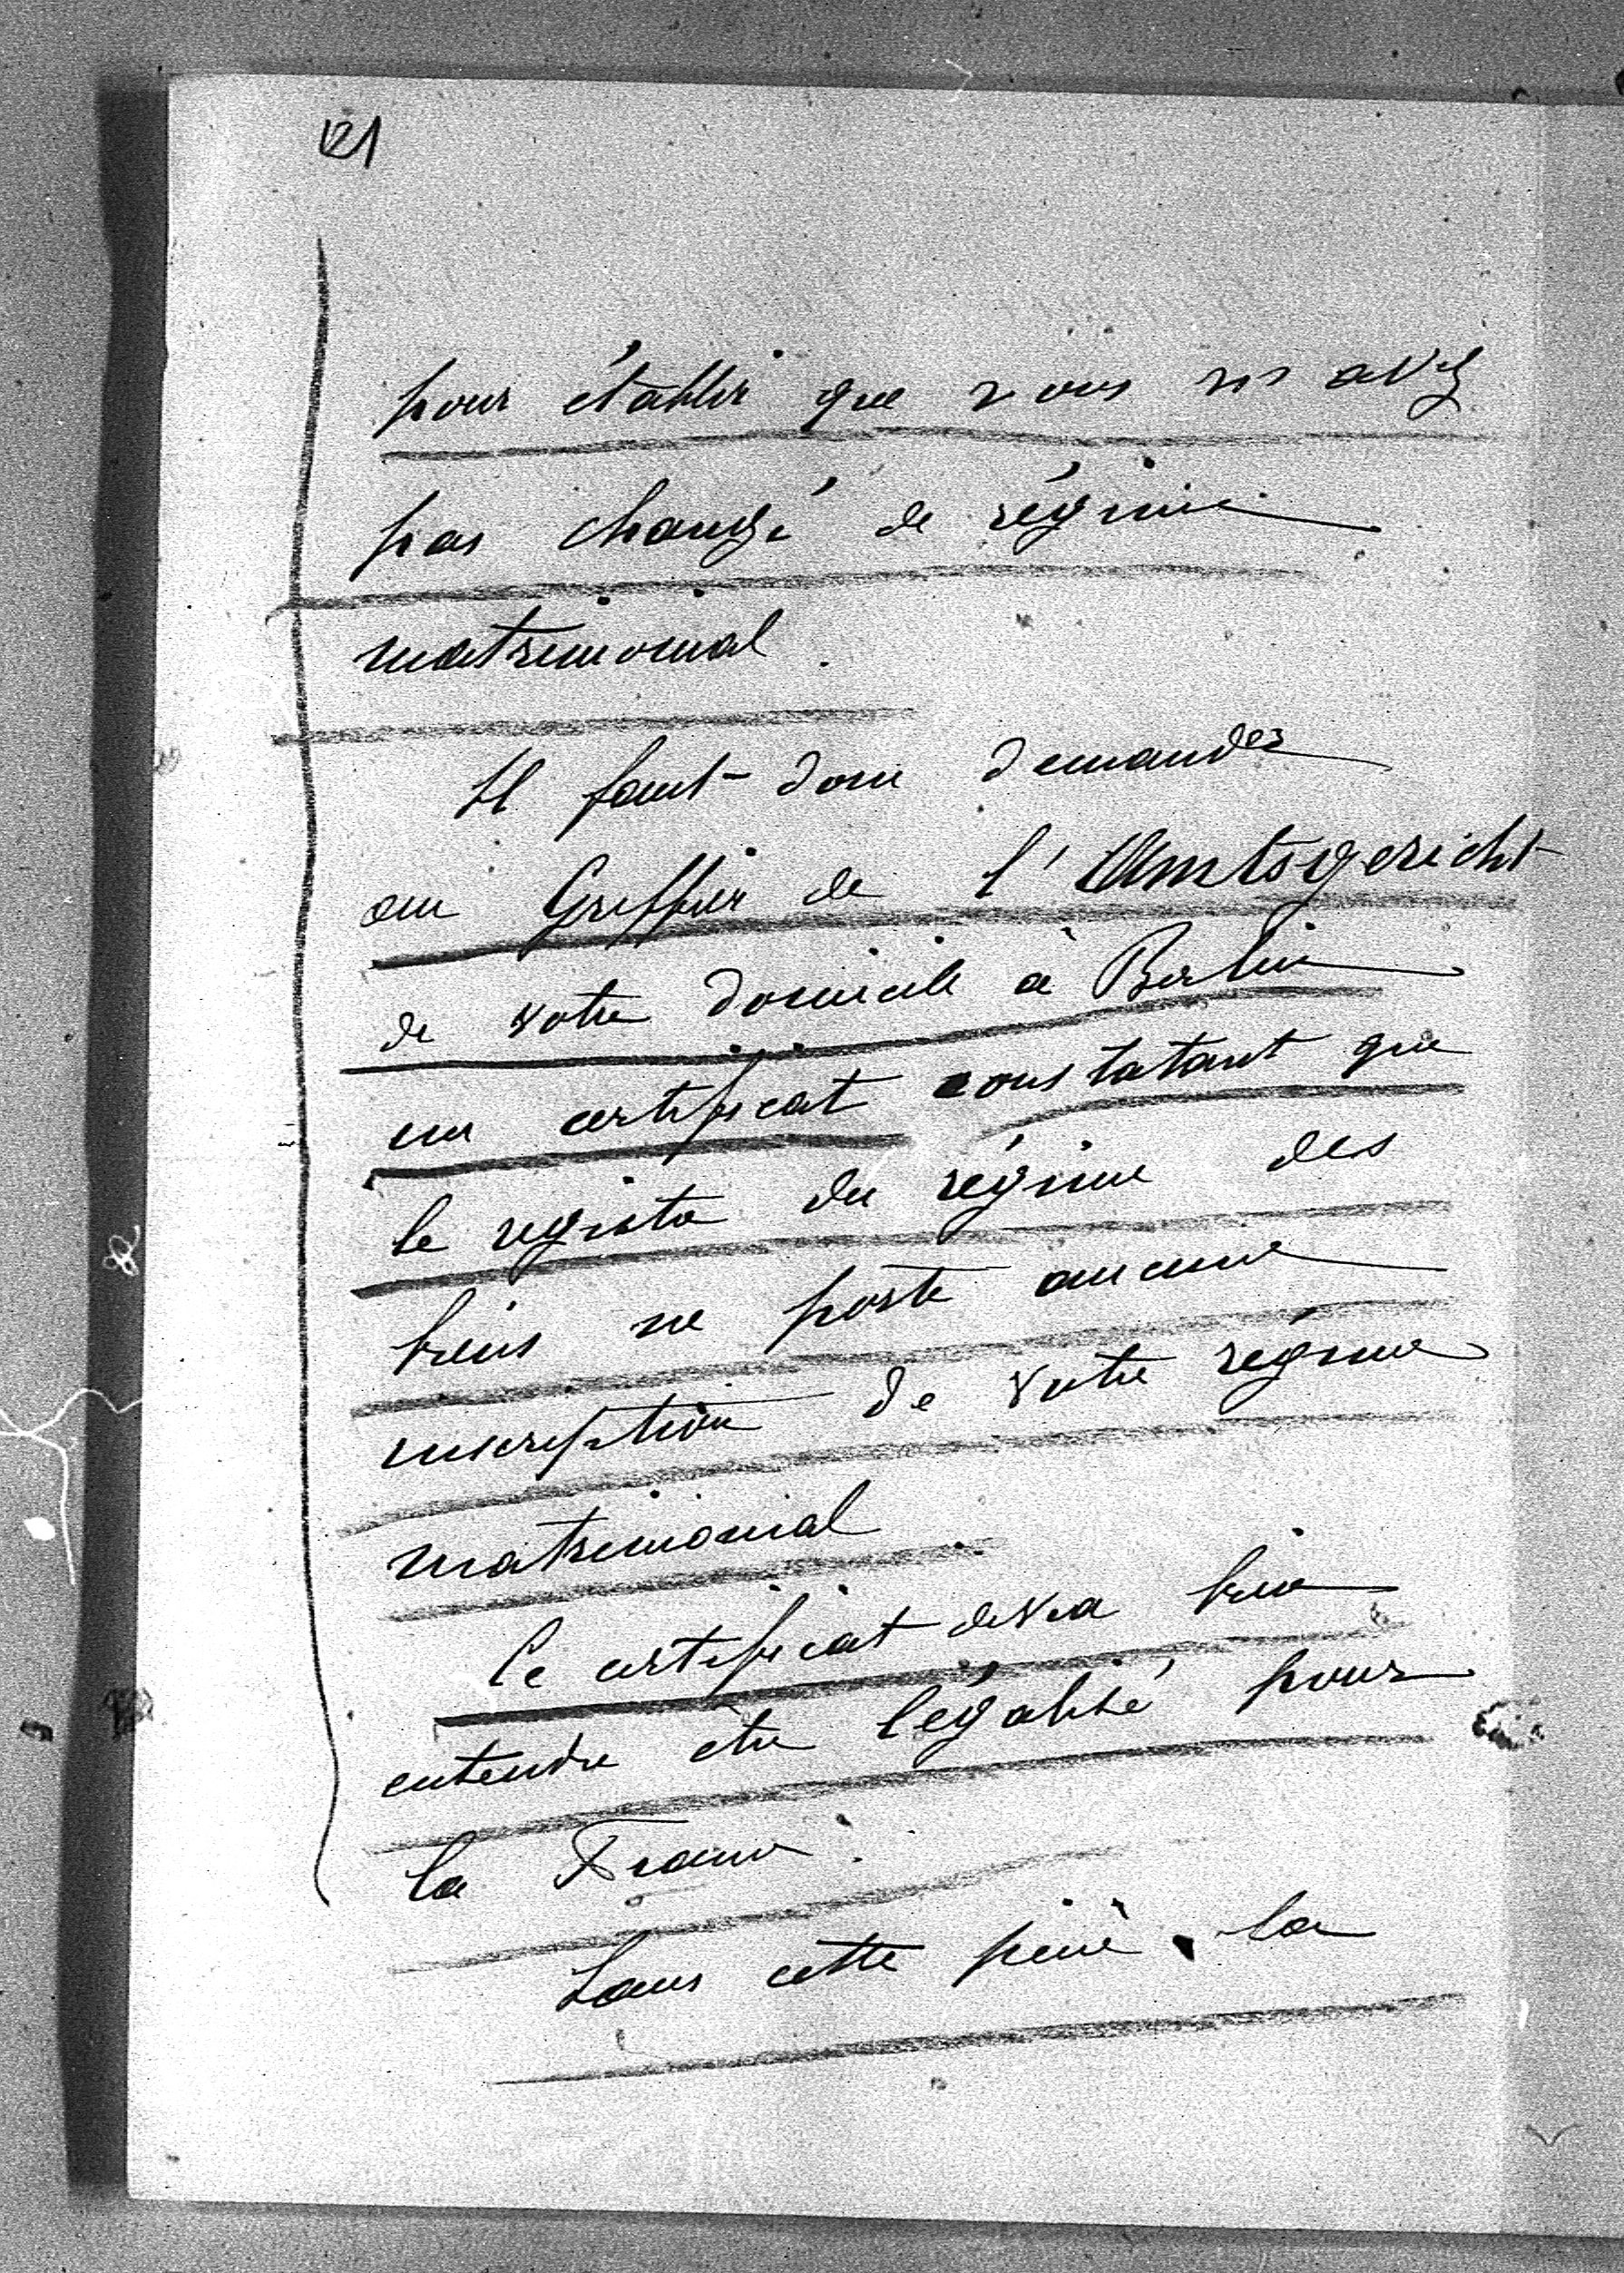 121
pour établir que vous n'avez
pas changé de régime
matrimonial.
Il faut donc demander
au Greffier de l'Amtsgericht
de votre domicile à Berlin
un certificat constatant que
le registre du régime des
biens ne porte aucune
inscription de votre régime
matrimonial
Ce certificat devra bien
entendu être légalisé pour
la France.
Sans cette pièce, la